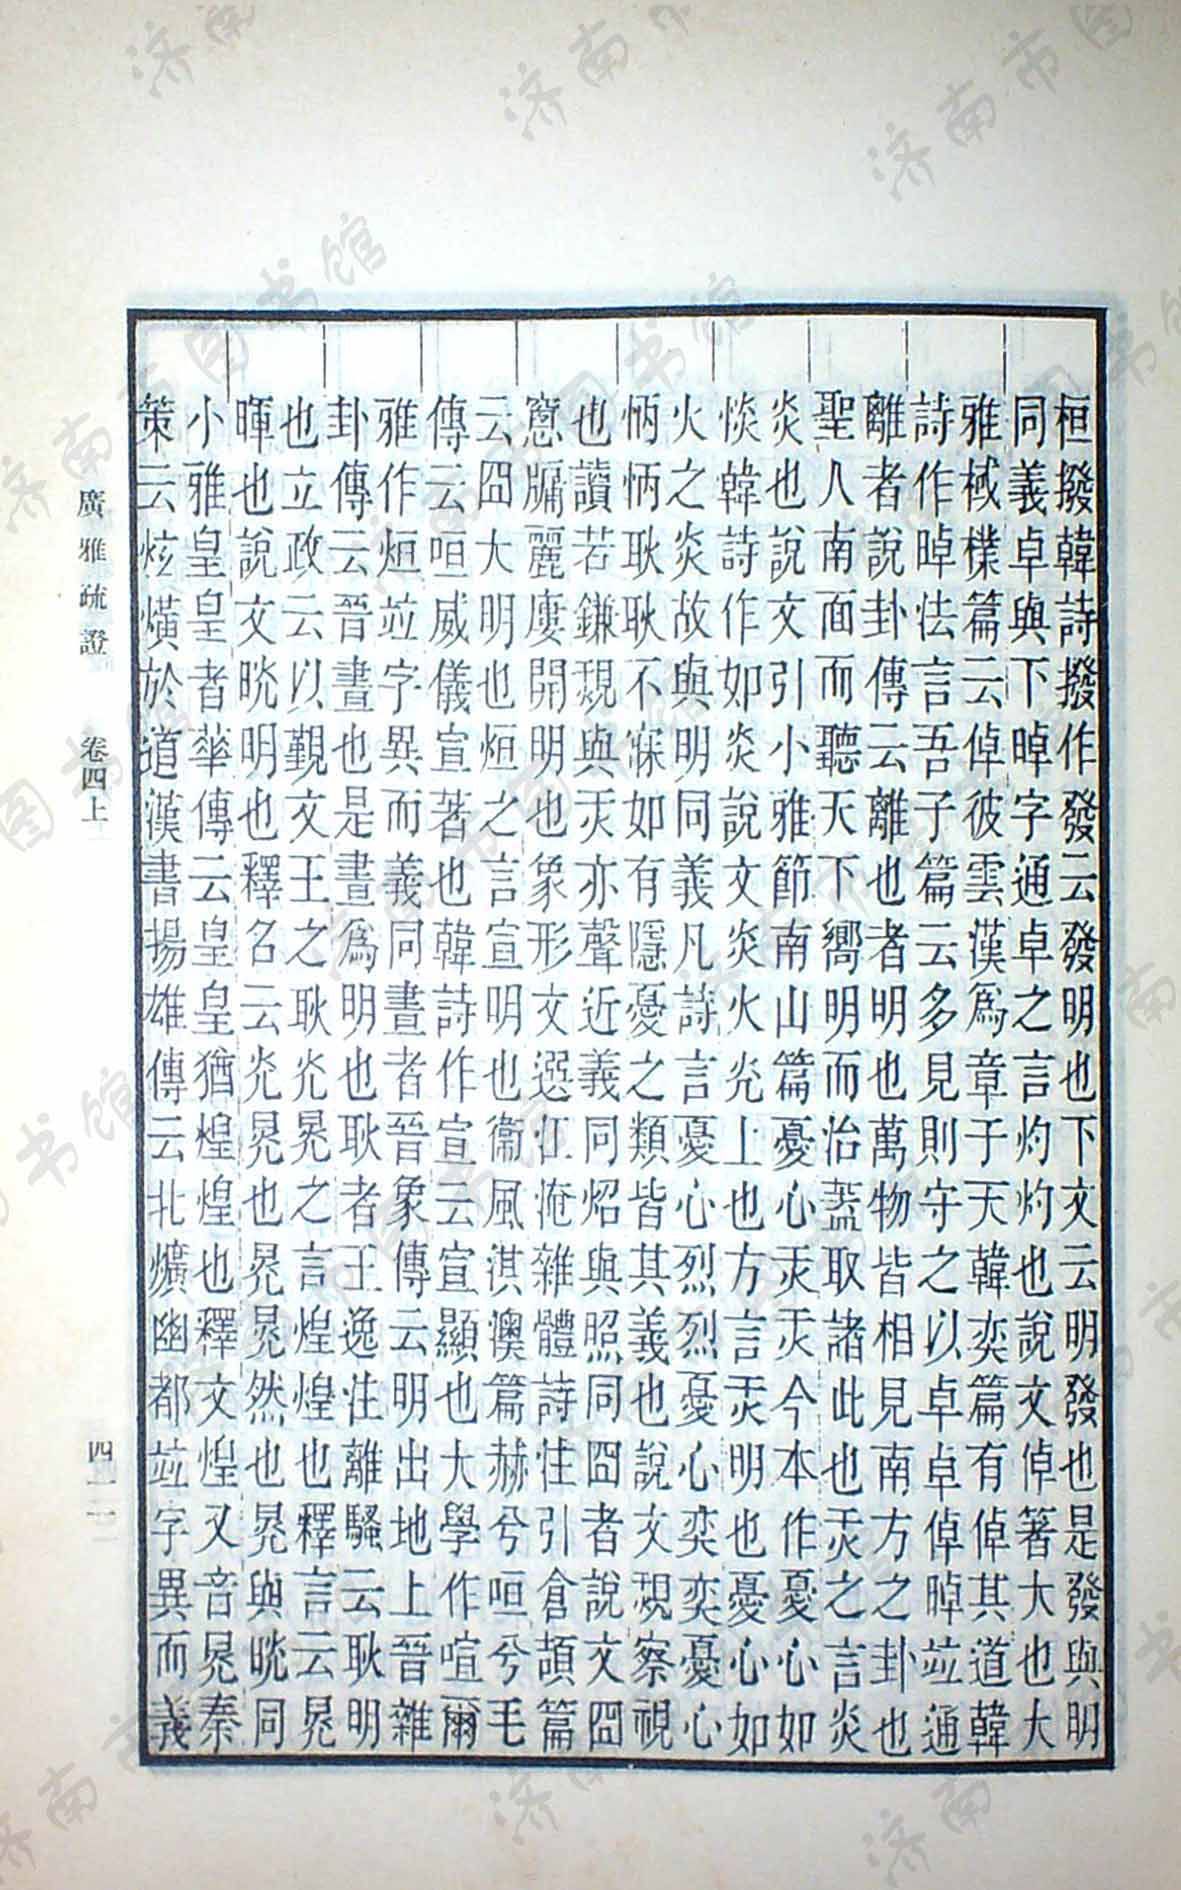 桓撥韓詩撥作發云發明也下文云明發也是發與明
同義卓與下晫字通卓之言灼灼也說文倬箸大也大
雅棫樸篇云倬彼雲漢為章于天韓奕篇有倬其道韓
詩作晫法言吾子篇云多見則守之以卓卓倬晫竝通
離者說卦傳云離也者明也萬物皆相見南方之卦也
聖人南面而聽天下嚮明而治蓋取諸此也炗之言炎
炎也說文引小雅節南山篇憂心炗炗今本作憂心如
惔韓詩作如炎說文炎火光上也方言炗明也憂心如
火之炎故與明同義凡詩言憂心烈烈憂心奕奕憂心
怲怲耿耿不寐如有隱憂之類皆其義也說文覝察視
也讀若鎌覝與炗亦聲近義同炤與照同囧者說文囧
窻牖麗廔開明也象形文選江淹雜體詩注引倉頡篇
云囧大明也烜之言宣明也衞風淇澳篇赫兮咺兮毛
傳云咺威儀宣著也韓詩作宣云宣顯也大學作喧爾
雅作烜竝字異而義同晝者晉象傳云明出地上晉雜
卦傳云晉晝也是晝為明也耿者王逸注離騷云耿明
也立政云以覲文王之耿光晃之言煌煌也釋言云晃
暉也說文晄明也釋名云光晃也晃晃然也晃與晄同
小雅皇皇者華傳云皇皇猶煌煌也釋文煌又音晃秦
策云炫熿於道漢書揚雄傳云北爌幽都竝字異而義
廣雅疏證 卷四上 四一一
济南市图书馆